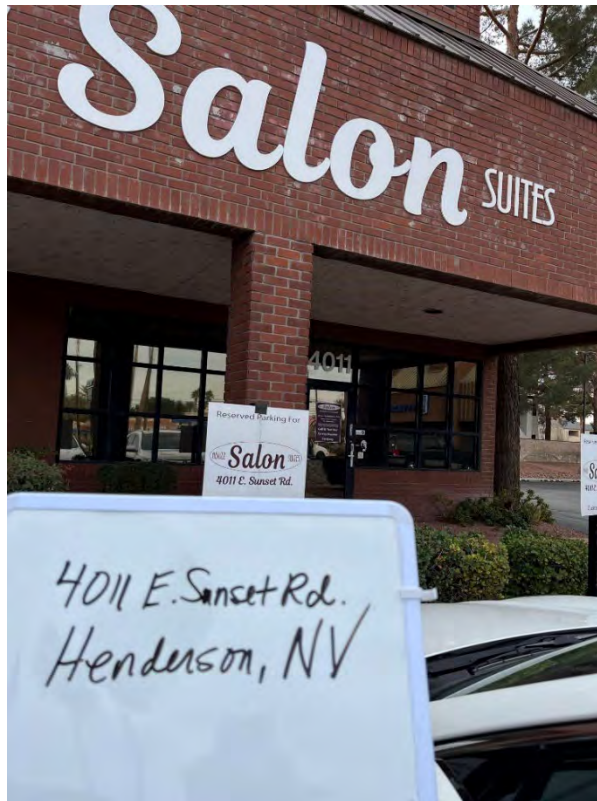 Salon SUITES
4011
Reserved Parking For
Salon
4011 E. Sunset Rd.
4011 E. Sunset Rd.
Henderson, NV